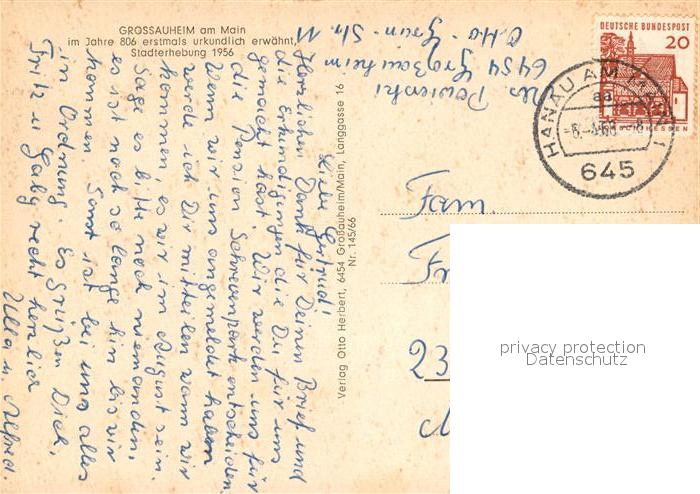 GROSSAUHEIM am Main
im Jahre 806 erstmals urkundlich erwähnt,
Stadterhebung 1956
Liebe Gertrud!
Herzlichen Dank für Deinen Brief und
die Erkundigungen die Du für uns
gemacht hast. Wir werden uns für
die Pension Schrevenpark entscheiden.
Wenn wir uns angemeldet haben
werde ich Dir mitteilen wann wir
kommen, es wir im August sein.
Sage es bitte noch niemanden,
es ist noch so lange hin bis wir
kommen. Sonst ist bei uns alles
in Ordnung. Es grüßen Dich,
Fritz u Gaby recht herzlich
Ulla u. Alfred.
Verlag Otto Herbert, 6454 Großauheim/Main, Langgasse 16
Nr. 145/66
6454 Großauheim
Str. 11
DEUTSCHE BUNDESPOST
20
HANAU AM MAIN 1
aa
645
Fam.
23
privacy protection
Datenschutz